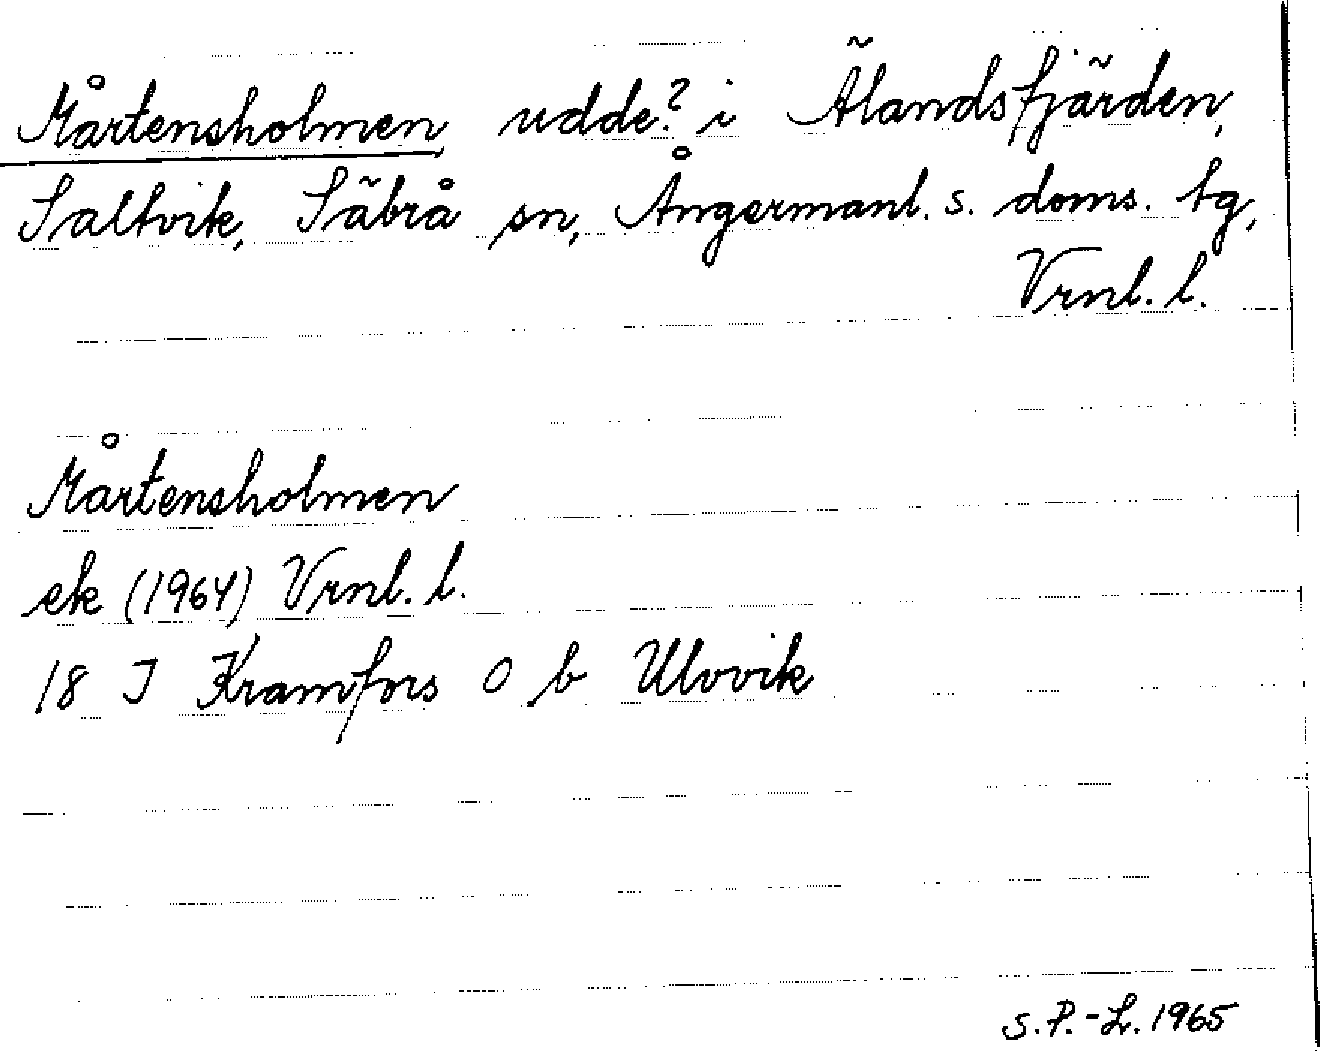 Mårtensholmen, udde? i Älandsfjärden,
Saltvik, Säbrå sn, Ångermanl. s. doms. tg,
Vrnl. l.
Mårtensholmen
ek (1964) Vrnl. l.
18 I Kramfors O b Ulvvik
S. P.-L. 1965